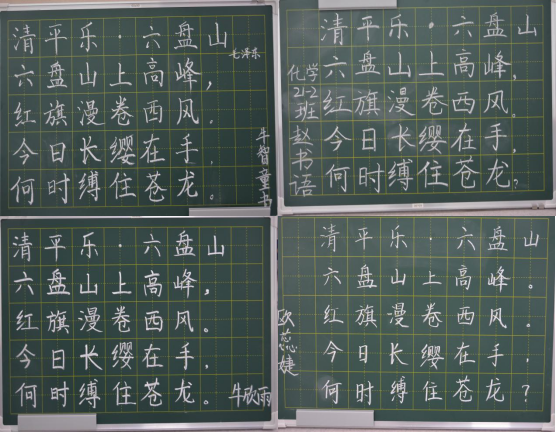 清平乐·六盘山
毛泽东
六盘山上高峰,
红旗漫卷西风.
今日长缨在手.
何时缚住苍龙。
牛智童书
清平乐·六盘山
六盘山上高峰,
红旗漫卷西风。
今日长缨在手,
何时缚住苍龙?
化学
21-2
班
赵书语
清平乐·六盘山
六盘山上高峰,
红旗漫卷西风。
今日长缨在手,
何时缚住苍龙。
牛欣雨
清平乐·六盘山
六盘山上高峰。
红旗漫卷西风。
今日长缨在手,
何时缚住苍龙?
欧蕊婕